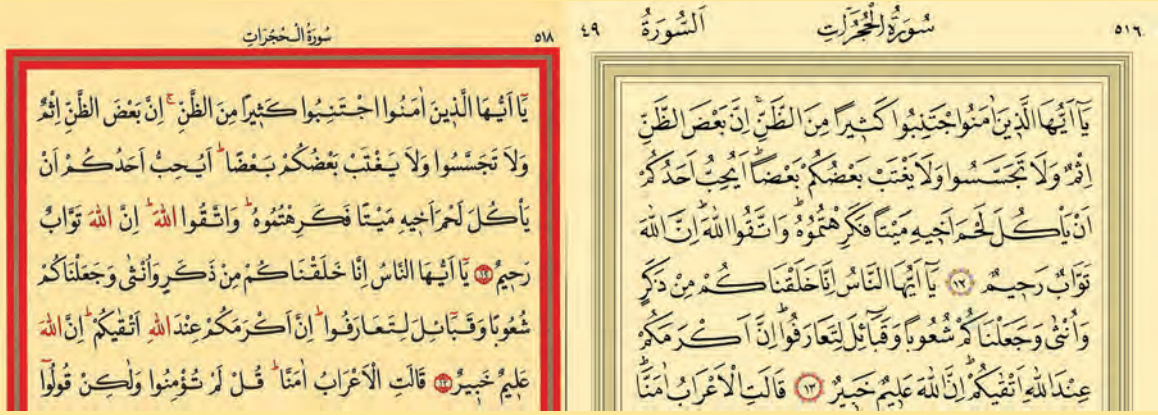 ٥١٦ سُورَةُ الْحُجُرَاتِ اَلسُّورَةُ ٤٩
يَٓا اَيُّهَا الَّذ۪ينَ اٰمَنُوا اجْتَنِبُوا كَث۪يرًا مِنَ الظَّنِّۚ اِنَّ بَعْضَ الظَّنِّ
اِثْمٌ وَلَا تَجَسَّسُوا وَلَا يَغْتَبْ بَعْضُكُمْ بَعْضًاۜ اَيُحِبُّ اَحَدُكُمْ
اَنْ يَأْكُلَ لَحْمَ اَخ۪يهِ مَيْتًا فَكَرِهْتُمُوهُۜ وَاتَّقُوا اللّٰهَۜ اِنَّ اللّٰهَ
تَوَّابٌ رَح۪يمٌ ﴿١٢﴾ يَٓا اَيُّهَا النَّاسُ اِنَّا خَلَقْنَاكُمْ مِنْ ذَكَرٍ
وَاُنْثٰى وَجَعَلْنَاكُمْ شُعُوبًا وَقَبَٓائِلَ لِتَعَارَفُواۜ اِنَّ اَكْرَمَكُمْ
عِنْدَ اللّٰهِ اَتْقٰيكُمْۜ اِنَّ اللّٰهَ عَل۪يمٌ خَب۪يرٌ ﴿١٣﴾ قَالَتِ الْاَعْرَابُ اٰمَنَّاۜ
٥١٨ سُورَةُ الْحُجُرَاتِ
يَٓا اَيُّهَا الَّذ۪ينَ اٰمَنُوا اجْتَنِبُوا كَث۪يرًا مِنَ الظَّنِّۚ اِنَّ بَعْضَ الظَّنِّ اِثْمٌ
وَلَا تَجَسَّسُوا وَلَا يَغْتَبْ بَعْضُكُمْ بَعْضًاۜ اَيُحِبُّ اَحَدُكُمْ اَنْ
يَأْكُلَ لَحْمَ اَخ۪يهِ مَيْتًا فَكَرِهْتُمُوهُۜ وَاتَّقُوا اللّٰهَۜ اِنَّ اللّٰهَ تَوَّابٌ
رَح۪يمٌ ﴿١٢﴾ يَٓا اَيُّهَا النَّاسُ اِنَّا خَلَقْنَاكُمْ مِنْ ذَكَرٍ وَاُنْثٰى وَجَعَلْنَاكُمْ
شُعُوبًا وَقَبَٓائِلَ لِتَعَارَفُواۜ اِنَّ اَكْرَمَكُمْ عِنْدَ اللّٰهِ اَتْقٰيكُمْۜ اِنَّ اللّٰهَ
عَل۪يمٌ خَب۪يرٌ ﴿١٣﴾ قَالَتِ الْاَعْرَابُ اٰمَنَّاۜ قُلْ لَمْ تُؤْمِنُوا وَلٰكِنْ قُولُٓوا